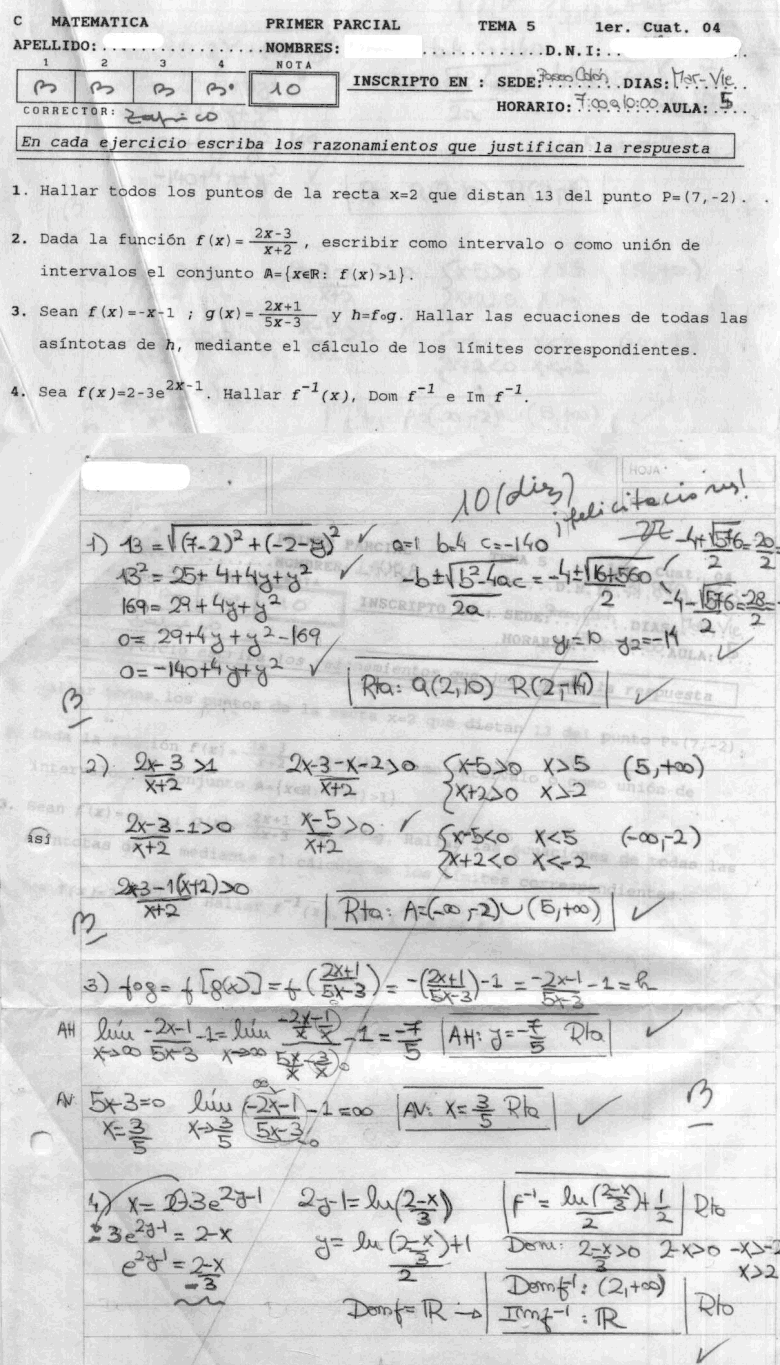 C MATEMATICA PRIMER PARCIAL TEMA 5 1er. Cuat. 04
APELLIDO:.................NOMBRES:.................D.N.I:..
1 2 3 4 NOTA
B B B B. 10 INSCRIPTO EN : SEDE: Paseo Colón DIAS: Mar-Vie
CORRECTOR: HORARIO: 7:00 a 10:00 AULA: 5
En cada ejercicio escriba los razonamientos que justifican la respuesta
1. Hallar todos los puntos de la recta x=2 que distan 13 del punto P=(7,-2).
2. Dada la función f(x)= 2x-3/x+2 , escribir como intervalo o como unión de
intervalos el conjunto A={x∈R: f(x)>1}.
3. Sean f(x)=-x-1 ; g(x)= 2x+1/5x-3 y h=f∘g. Hallar las ecuaciones de todas las
asíntotas de h, mediante el cálculo de los límites correspondientes.
4. Sea f(x)=2-3e^2x-1. Hallar f^-1(x), Dom f^-1 e Im f^-1.
HOJA
10 (diez)
¡felicitaciones!
1) 13 = √(7-2)² + (-2-y)² a=1 b=4 c=-140 -4+√576/2=20/2=
13² = 25+4+4y+y² -b±√b²-4ac/2a = -4±√16+560/2 -4-√576/2=-28/2=
169 = 29+4y+y²
0= 29+4y+y²-169 y₁=10 y₂=-14
0=-140+4y+y² Rta: Q(2,10) R(2,-14)
B
2) 2x-3/x+2 >1 2x-3-x-2/x+2 >0 {x-5>0 x>5 (5,+∞)
x+2>0 x>2
2x-3/x+2 -1>0 x-5/x+2 >0 {x-5<0 x<5 (-∞,-2)
x+2<0 x<-2
así
2x-3-1(x+2)/x+2 >0 Rta: A=(-∞,-2)∪(5,+∞)
B
3) fog = f[g(x)] = f(2x+1/5x-3) = -(2x+1/5x-3)-1 = -2x-1/5x-3 -1 = h
AH lím x→∞ -2x-1/5x-3 -1 = lím x→∞ -2x/x-1/x / 5x/x-3/x -1 = -7/5 AH: y=-7/5 Rta
AV 5x-3=0 lím x→3/5 (-2x-1/5x-3)-1=∞ AV: x=3/5 Rta B
x=3/5
4) x= 2-3e^2y-1 2y-1=ln(2-x/3) f^-1 = ln(2-x/3)/2 + 1/2 Rta
-3e^2y-1 = 2-x y= ln(2-x/3)+1/2 Dom: 2-x/3>0 2-x>0 -x>-2
e^2y-1 = 2-x/-3 x>2
Domf=R → Domf^-1: (2,+∞)
Imf^-1: R Rta